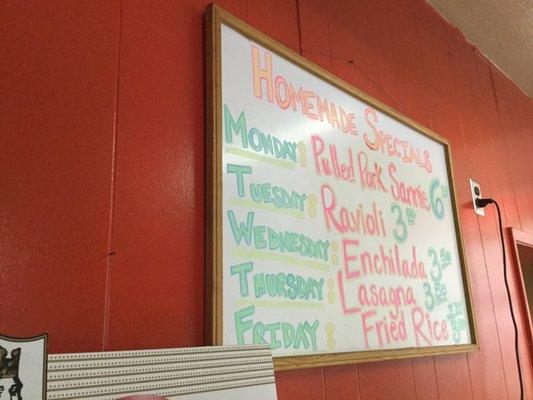 Homemade Specials
Monday: Pulled Pork Sannie 6
Tuesday: Ravioli 3
Wednesday: Enchilada 3
Thursday: Lasagna 3
Friday Fried Rice